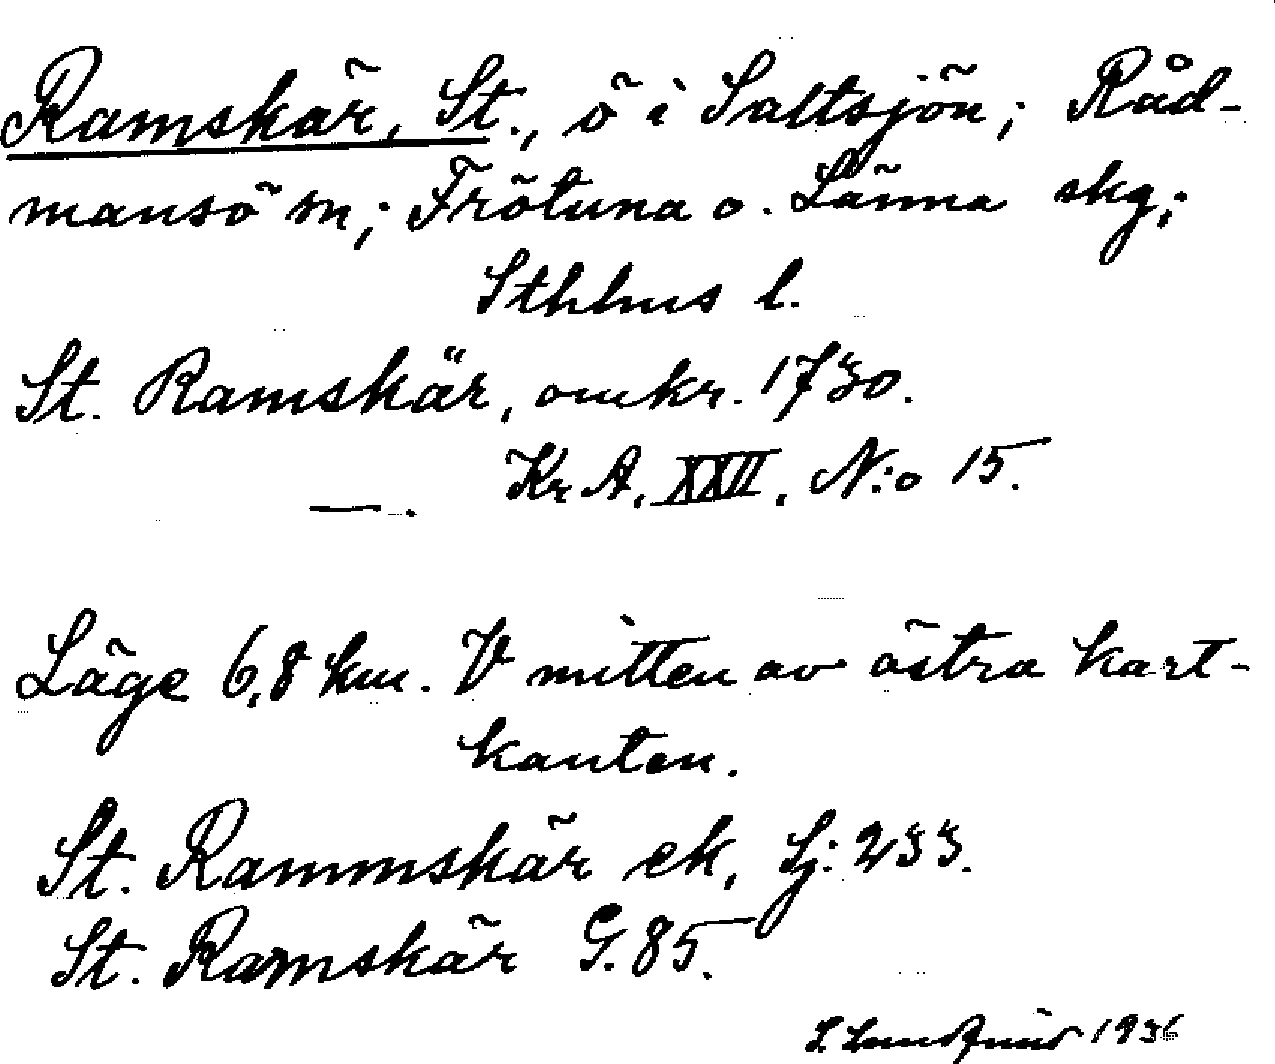 Ramskär, St., ö i Saltsjön; Råd-
mansö sn; Frötuna o. Länna skg;
Sthlms l.
St. Ramskär, omkr. 1730.
Kr A. XXII. N:o 15.
Läge 6,8 km. V mitten av östra kart-
kanten.
St. Rammskär ek, Lj: 233.
St. Ramskär G. 85.
1936